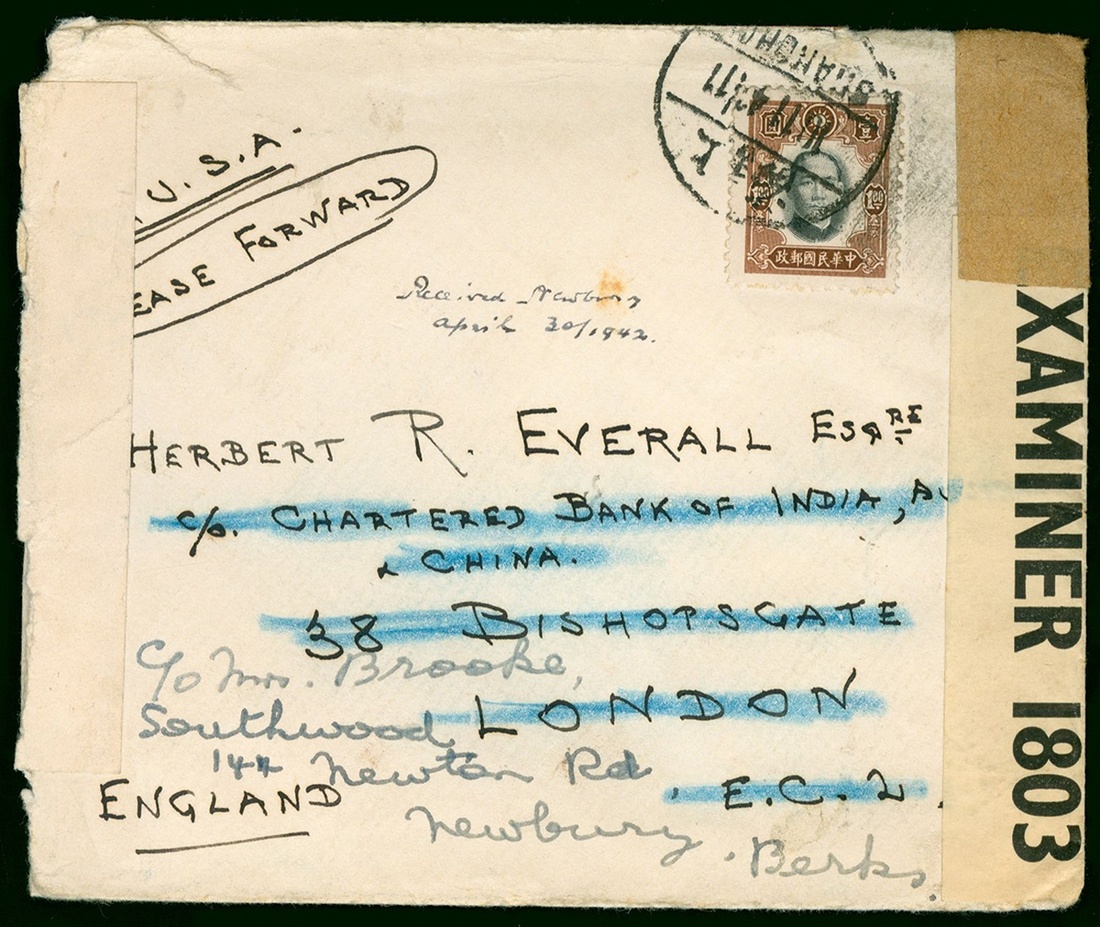 U.S.A.
EASE FORWARD
SHANGHAI
11
壹 圓
1.00 1.00
政郵國民華中
Received Newbury
April 30/1942.
HERBERT R. EVERALL ESQRE
c/o. CHARTERED BANK OF INDIA, AU
& CHINA.
38 BISHOPSGATE
LONDON
E.C.2.
ENGLAND
C/o Mrs. Brooke,
Southwood
144 Newton Rd
Newbury. Berks.
EXAMINER 1803